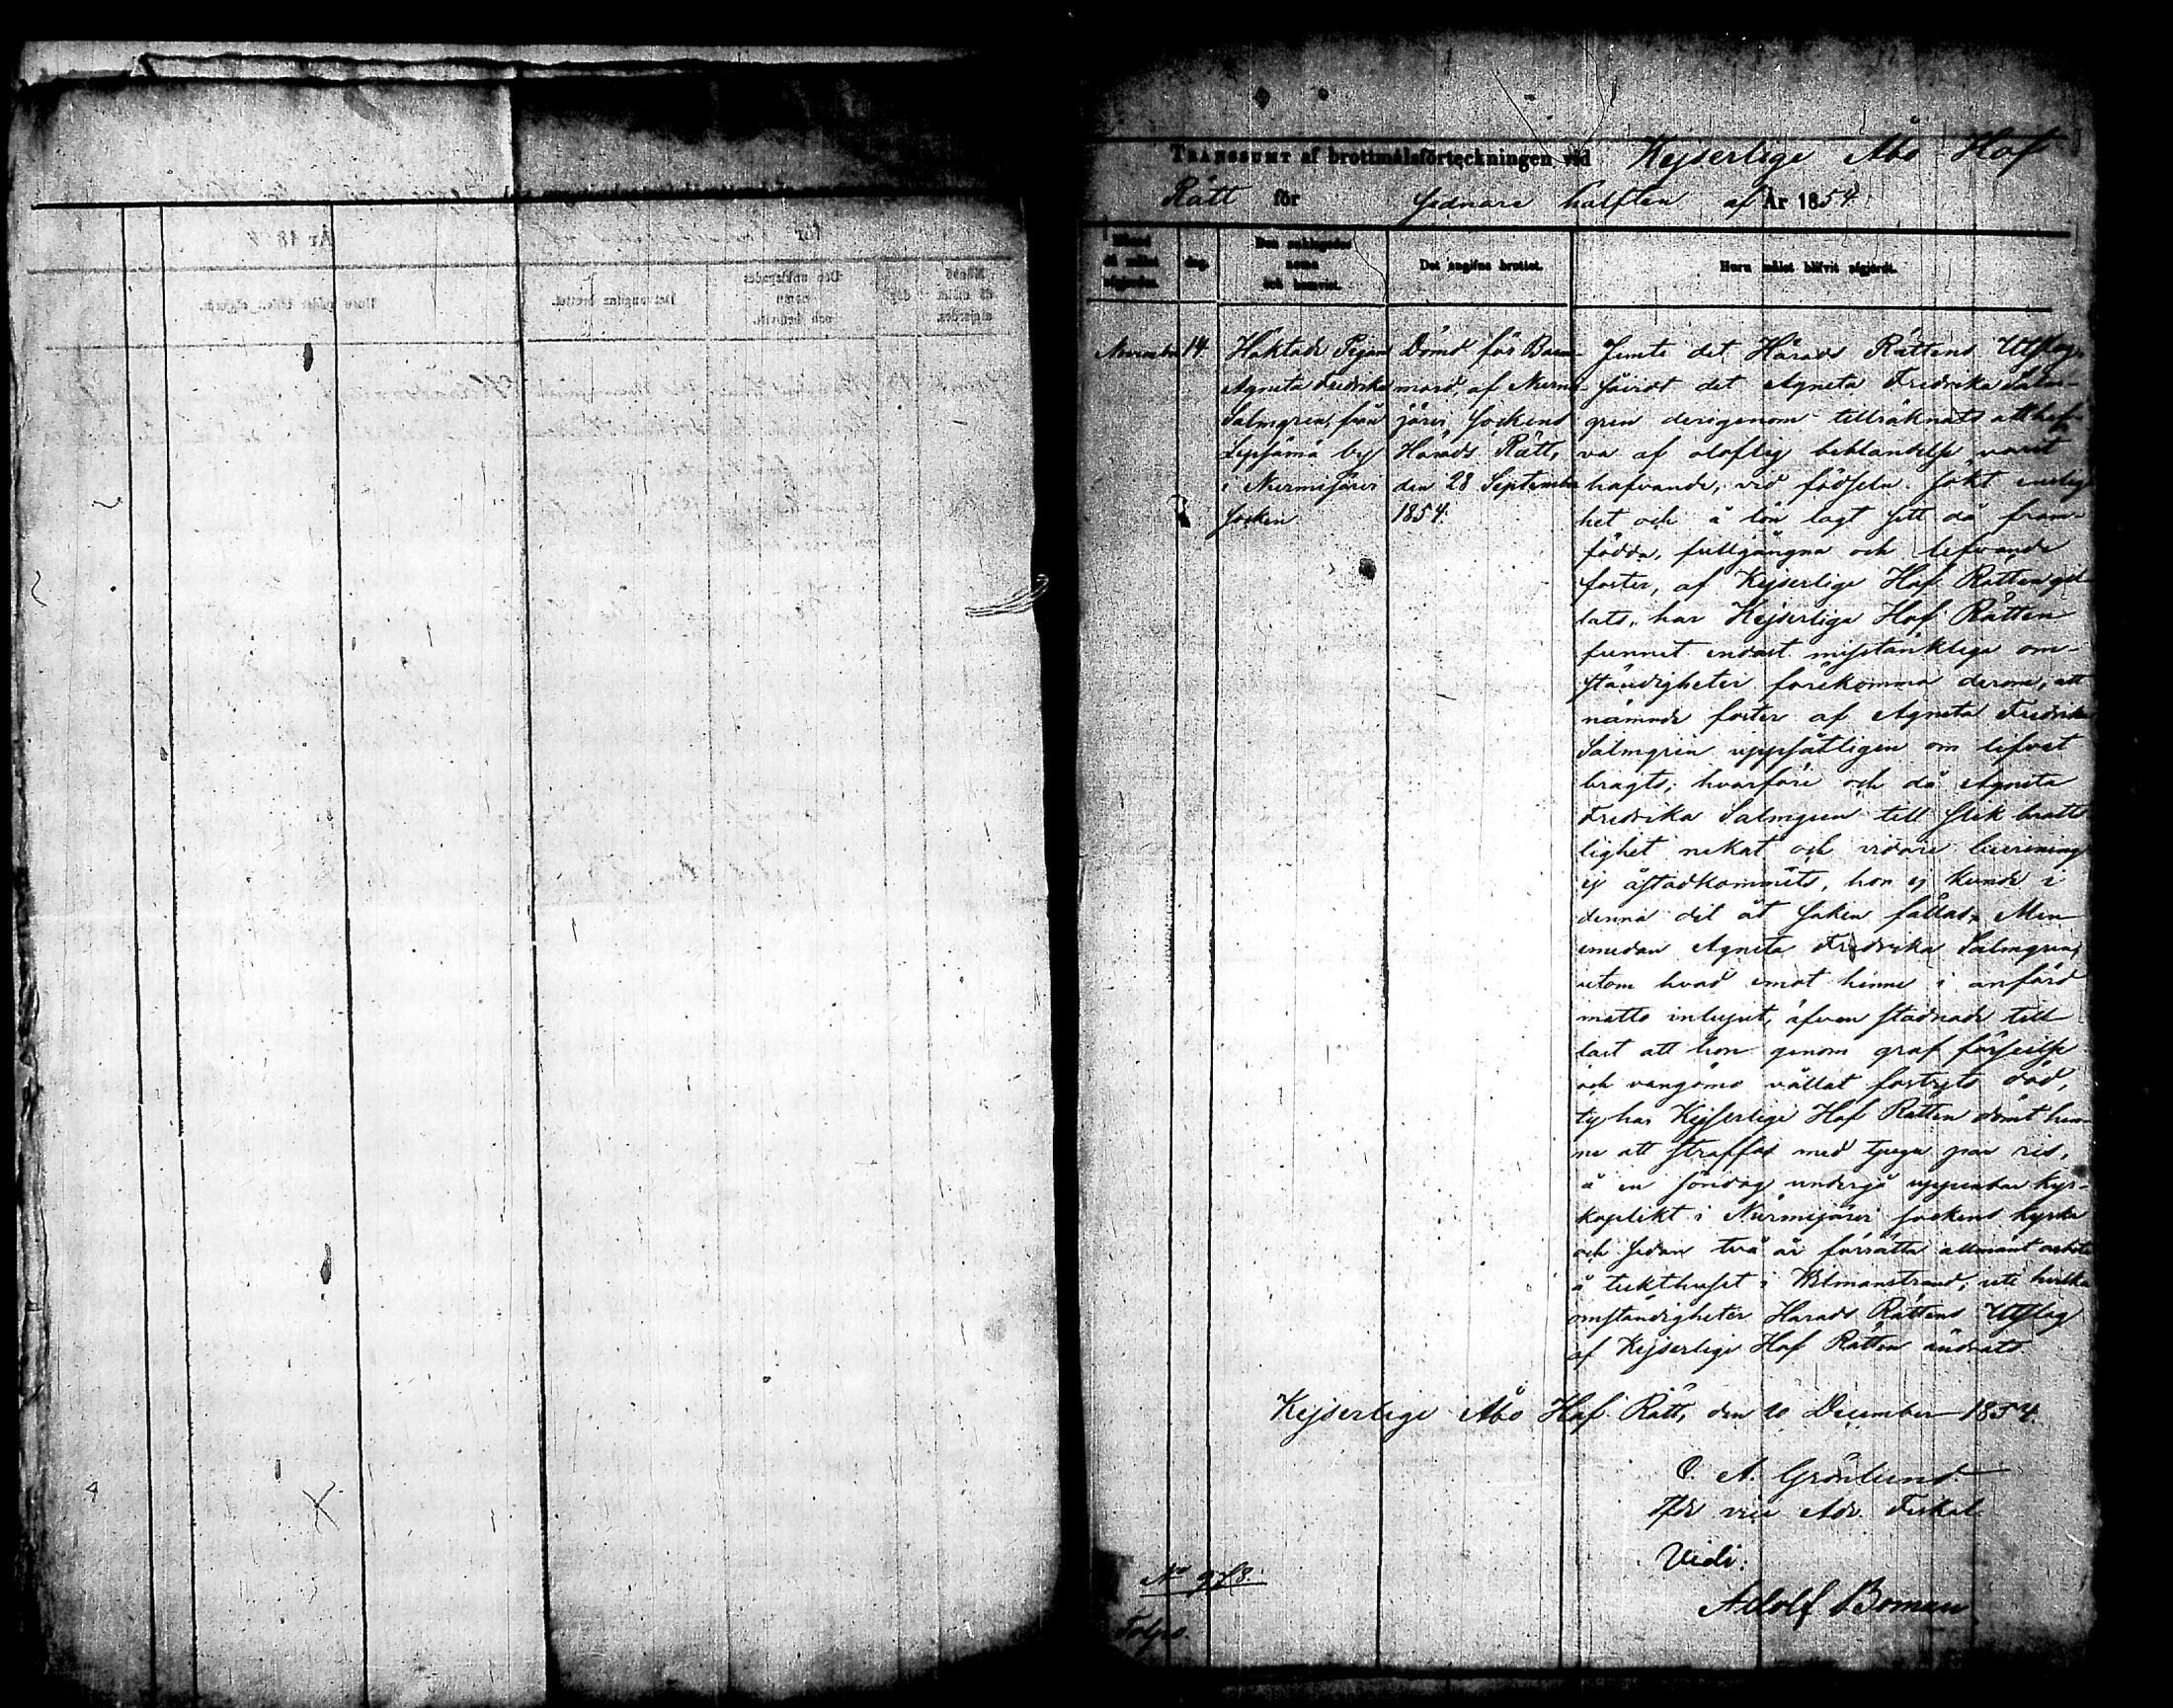 Transsumt af brottmålsförteckningen vid Kejserlige Åbo Hof
Rätt för sednare hälften af År 1854
Månad då målet afgjordes.
dag.
Den anklagades namn och hemvist.
Det angifna brottet.
Huru målet blifvit afgjordt.
November 14
Häktade Pigan
Agneta Fredrika
Salmgren, från
Lepsämä by
i Nurmijärvi
socken
Dömd för Barna-
mord, af Nurmi-
järvi Sockens
Härads Rätt,
den 28 September
1854.
Jemte det Härads Rättens Utslag,
såvidt det Agneta Fredrika Salm-
gren derigenom tillräknats att haf-
va af oloflig beblandelse varit
hafvande, vid födseln sökt enslig-
het och å lön lagt sitt då fram-
födda, fullgångna och lefvande
foster, af Kejserlige Hof Rätten gil-
lats, har Kejserlige Hof Rätten
funnit endast misstänkliga om-
ständigheter förekomma derom, att
nämnde foster af Agneta Fredrika
Salmgren uppsåtligen om lifvet
bragts; hvarföre och då Agneta
Fredrika Salmgren till slik brotts-
lighet nekat och vidare bevisning
ej åstadkommits, hon ej kunde i
denna del åt saken fällas. Men
emedan Agneta Fredrika Salmgren,
utom hvad emot henne i anförd
måtto inlupit, äfven stadnade till
last att hon genom grof förseelse
och vangömo vållat fostrets död,
ty har Kejserlige Hof Rätten dömt hen-
ne att straffas med tjugu par ris,
å en söndag undergå uppenbar kyr-
koplikt i Nurmijärvi sockens kyrka
och sedan två år förrätta allmänt arbete
å tukthuset i Wilmanstrand; uti hvilka
omständigheter Härads Rättens Utslag
af Kejserlige Hof Rätten ändrats
Kejserlige Åbo Hof Rätt, den 20 December 1854.
C. A. Grönlund.
Tfde vice Adv. Fiskal.
Vidi:
Adolf Boman
No 978.